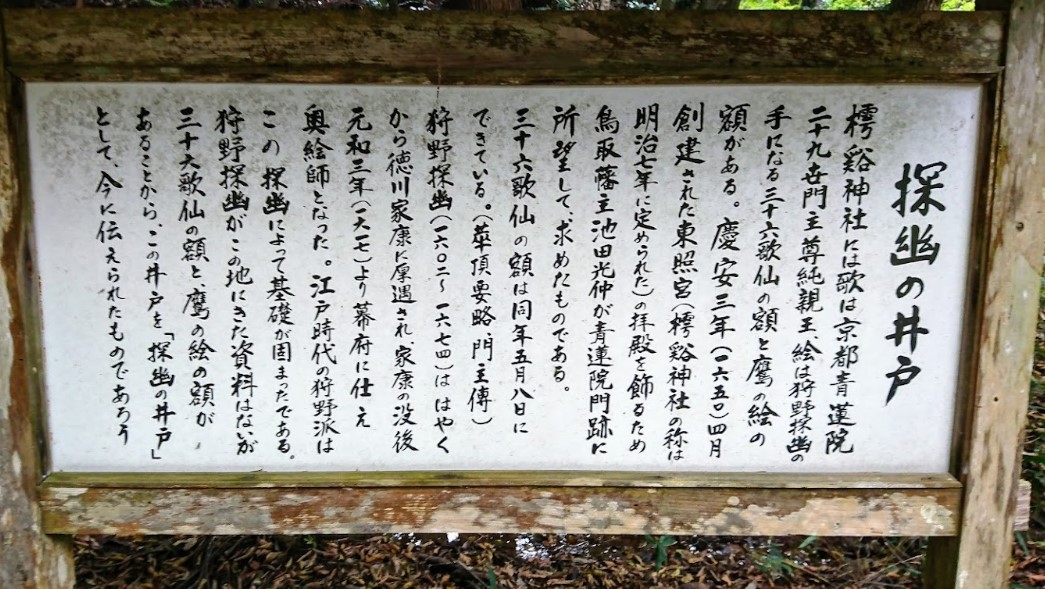 探幽の井戸
樗谿神社には歌は京都青蓮院
二十九世門主尊純親王、絵は狩野探幽の
手になる三十六歌仙の額と鷹の絵の
額がある。慶安三年(一六五〇)四月
創建された東照宮(樗谿神社の称は
明治七年に定められた)の拝殿を飾るため
鳥取藩主池田光仲が青連院門跡に
所望して、求めたものである。
三十六歌仙の額は同年五月八日に
できている。(華頂要略、門主傳)
狩野探幽(一六〇二〜一六七四)ははやく
から徳川家康に厚遇され、家康の没後
元和三年(一六一七)より幕府に仕え
奥絵師となった。江戸時代の狩野派は
この探幽によって基礎が固まったである。
狩野探幽がこの地にきた資料はないが
三十六歌仙の額と、鷹の絵の額が
あることから、この井戸を「探幽の井戸」
として、今に伝えられたものであろう